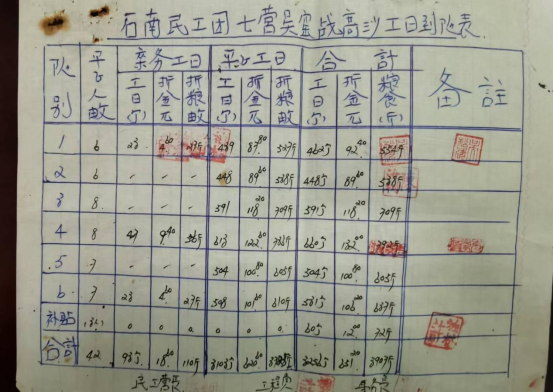 石南民工团七营吴窑战高沙工日到队表
队别 平工人数 杂务工日 平工工日 合计 备註
工日(个) 折金元 折粮数 工日(个) 折金元 折粮数 工日(个) 折金元 粮食(斤)
1 6 23 4.60 27斤 439 87.80 527斤 462个 92.40 554斤
2 6 - - - 448 89.60 538斤 448个 89.60 538斤
3 8 - - - 591 118.20 709斤 591个 118.20 709斤
4 8 47 9.40 56斤 613 122.60 736斤 660个 132.00 792斤
5 7 - - - 504 100.80 605斤 504个 100.80 605斤
6 7 23 4.60 27斤 508 101.60 610斤 531个 106.20 637斤
补贴 0 0 0 0 0 0 60个 12.00 72斤
合计 42 93个 18.60 110斤 3103个 620.60 3256个 651.20 3907斤
民工营长 工程员 事务员